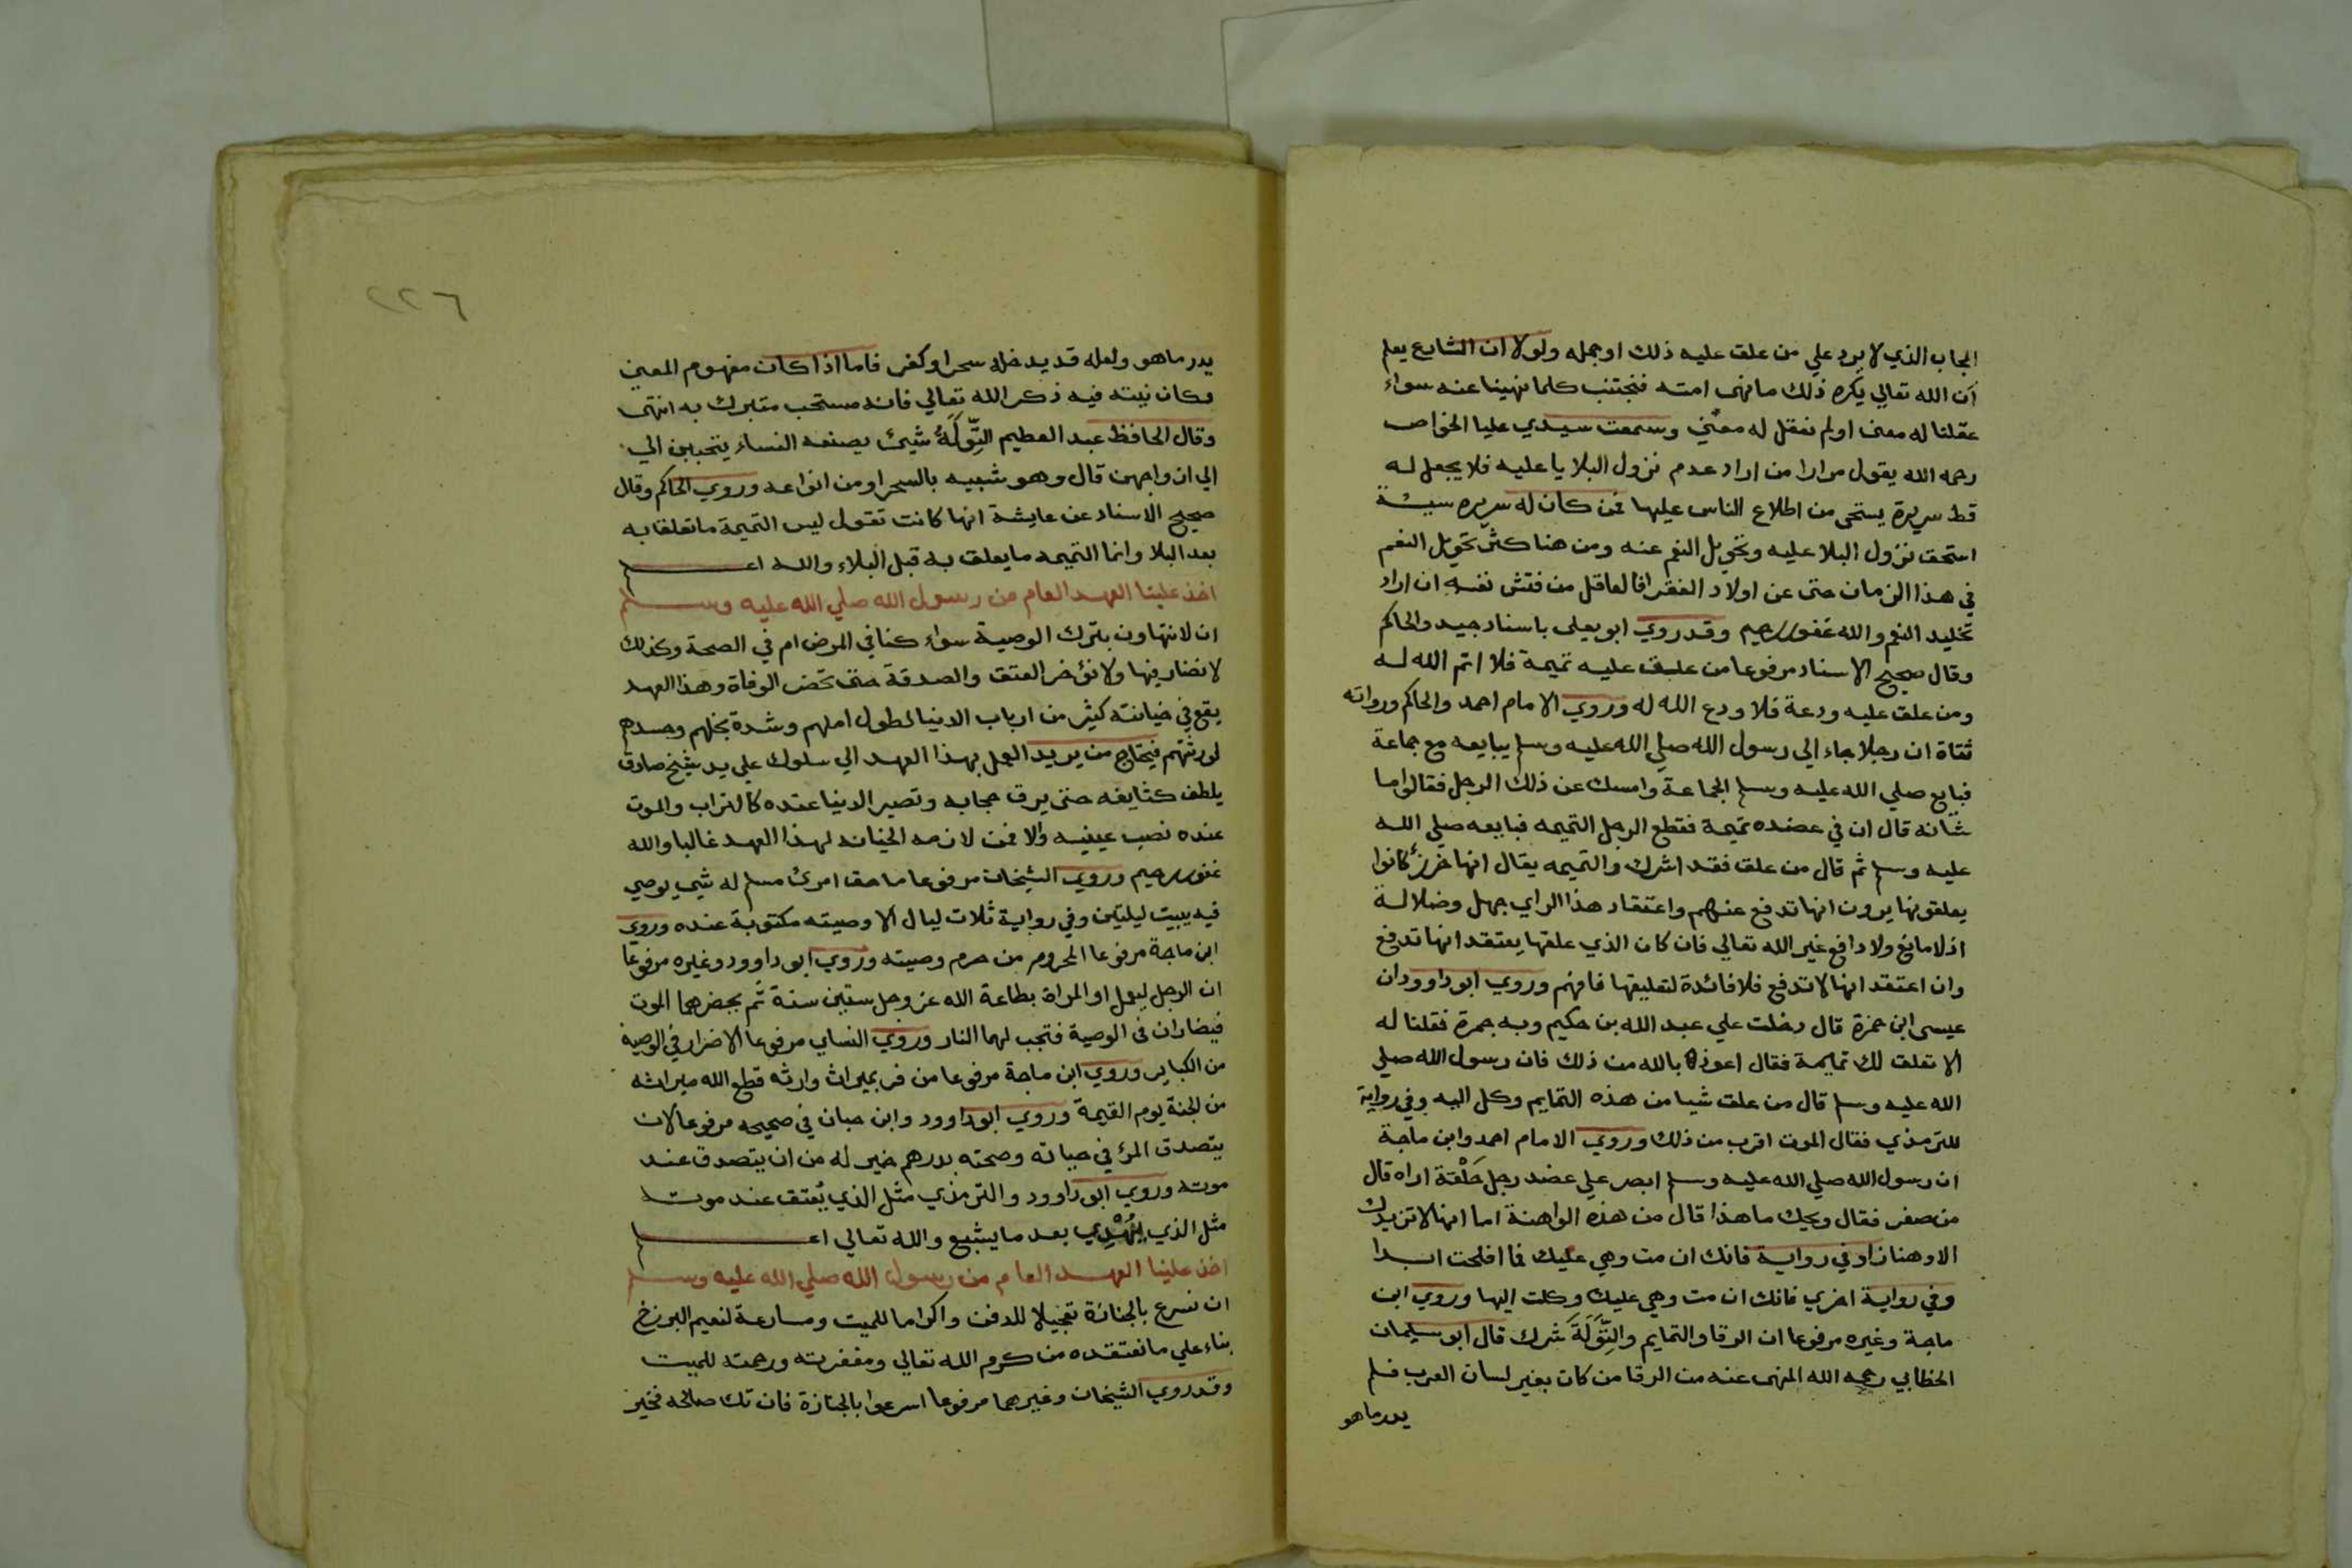 الحجاب الذي لا يرد علي من علق عليه ذلك او جمله ولولا ان الشارع يعلم
ان الله تعالي يكره ذلك ما نهى امته فنجتنب كلما نهينا عنه سواء
عقلنا له معنى او لم نعقل له معنى وسمعت سيدي عليا الخواص
رحمه الله يقول مرارا من اراد عدم نزول البلايا عليه فلا يجعل له
قط سريرة يستحى من اطلاع الناس عليها فمن كان له سريره سيئة
استحق نزول البلا عليه وتحويل النعم عنه ومن هنا كثر تحويل النعم
في هذا الزمان حتى عن اولاد الفقرا فالعاقل من فتش نفسه ان اراد
تخليد النعم والله غفور رحيم وقد روي ابو يعلى باسناد جيد والحاكم
وقال صحيح الاسناد مرفوعا من علق عليه تميمة فلا اتم الله له
ومن علق عليه ودعة فلا ودع الله له وروي الامام احمد والحاكم ورواته
ثقاة ان رجلا جاء الى رسول الله صلي الله عليه وسلم يبايعه مع جماعة
فبايع صلي الله عليه وسلم الجماعة وامسك عن ذلك الرجل فقالوا ما
شانه قال ان في عضده تميمة فقطع الرجل التميمه فبايعه صلي الله
عليه وسلم ثم قال من علق فقد اشرك والتميمه يقال انها خرزة كانوا
يعلقونها يرون انها تدفع عنهم واعتقاد هذا الراي جهل وضلالة
اذ لا مانع ولا دافع غير الله تعالي فان كان الذي علقها يعتقد انها تدفع
وان اعتقد انها لا تدفع فلا فائدة لتعليقها فافهم وروي ابو داوود ان
عيسى ابن حمزة قال دخلت علي عبد الله بن حكيم وبه حمرة فقلنا له
الا تعلق لك تميمة فقال اعوذ بالله من ذلك فان رسول الله صلي
الله عليه وسلم قال من علق شيا من هذه التمايم وكل اليه وفي رواية
للترمذي فقال الموت اقرب من ذلك وروي الامام احمد وابن ماجة
ان رسول الله صلي الله عليه وسلم ابصر علي عضد رجل حَلْقة اراه قال
من صفر فقال ويحك ما هذا قال من هذه الواهنة اما انها لا تزيدك
الا وهنا زاد في رواية فانك ان مت وهي عليك فما افلحت ابدا
وفي رواية اخري فانك ان مت وهي عليك وكلت اليها وروي ابن
ماجة وغيره مرفوعا ان الرقا والتمايم والتِّوَلَةَ شرك قال ابو سليمان
الخطابي رحمه الله المنهى عنه من الرقا من كان بغير لسان العرب فلم
يدر ما هو
٢٢٦
يدر ما هو ولعله قد يدخله سحر او كفر فاما اذا كان مفهوم المعنى
وكان نيته فيه ذكر الله تعالي فانه مستحب متبرك به انتهى
وقال الحافظ عبد العظيم التِّوَلَةُ شيئ يصنعه النساء يتحببن الي
الي ازواجهن قال وهو شبيه بالسحر او من انواعه وروي الحاكم وقال
صحيح الاسناد عن عايشة انها كانت تقول ليس التميمة ما تعلقا به
بعد البلا وانما التميمه ما يعلق به قبل البلاء والله اعلم
اخذ علينا العهد العام من رسول الله صلي الله عليه وسلم
ان لا نتهاون بترك الوصية سواء كنا في المرض ام في الصحة وكذلك
لا نضار فيها ولا نؤخر العتق والصدقة حتى تحضر الوفاة وهذا العهد
يقع في خيانته كثير من ارباب الدنيا لطول املهم وشدة بخلهم وحسدهم
لورثتهم فيحتاج من يريد العمل بهذا العهد الي سلوك علي يد شيخ صادق
يلطف كثايفه حتى يرق حجابه وتصير الدنيا عنده كالتراب والموت
عنده نصب عينيه والا فمن لازمه الخيانه لهذا العهد غالبا والله
غفور رحيم وروي الشيخان مرفوعا ما حق امرئ مسلم له شي يوصي
فيه يبيت ليلتين وفي رواية ثلاث ليال الا وصيته مكتوبة عنده وروي
ابن ماجة مرفوعا المحروم من حرم وصيته وروي ابو داوود وغيره مرفوعا
ان الرجل ليعمل او المراة بطاعة الله عز وجل ستين سنة ثم يحضرهما الموت
فيضاران فى الوصية فتجب لهما النار وروي النساي مرفوعا الاضرار في الوصية
من الكباير وروي ابن ماجة مرفوعا من فر بميراث وارثه قطع الله ميراثه
من الجنة يوم القيمة وروي ابو داوود وابن حبان في صحيحه مرفوعا لان
يتصدق المرء في حياته وصحته بدرهم خير له من ان يتصدق عند
موته وروي ابو داوود والترمذي مثل الذي يُعتق عند موته
مثل الذي يُهْدِي بعد ما يشبع والله تعالي اعلم
اخذ علينا العهد العام من رسول الله صلي الله عليه وسلم
ان نسرع بالجنازة تعجيلا للدفن واكراما للميت ومسارعة لنعيم البرزخ
بناء علي ما نعتقده من كرم الله تعالي ومغفرته ورحمته للميت
وقد روي الشيخان وغيرهما مرفوعا اسرعوا بالجنازة فان تك صالحه فخير